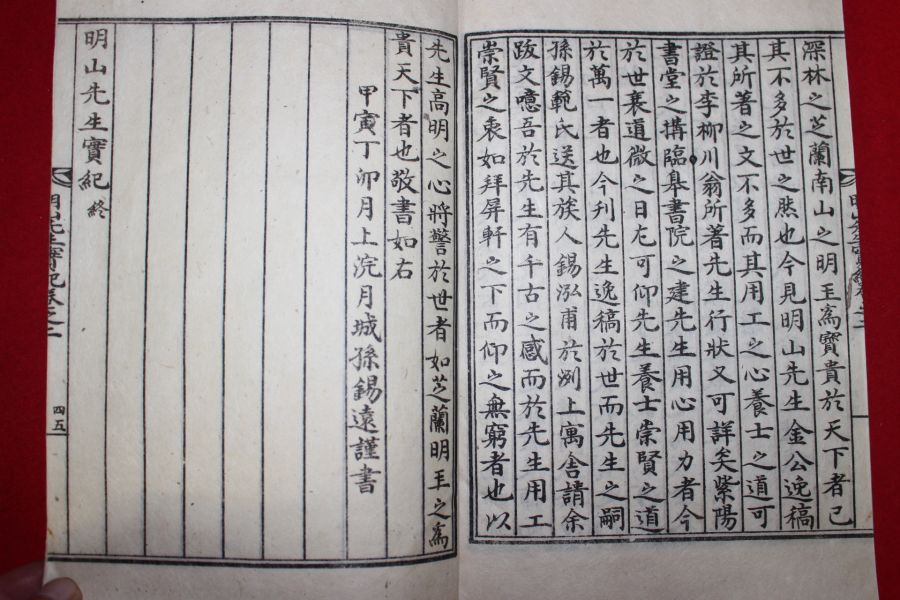 深林之芝蘭南山之明玉爲寶貴於天下者已
其不多於世之然也今見明山先生金公逸稿
其所著之文不多而其用工之心養士之道可
證於李柳川翁所著先生行狀又可詳矣紫陽
書堂之搆臨皋書院之建先生用心用力者今
於世衰道微之日尤可仰先生養士崇賢之道
於萬一者也今刋先生逸稿於世而先生之嗣
孫錫範氏送其族人錫泓甫於洌上寓舍請余
跋文噫吾於先生有千古之感而於先生用工
崇賢之衷如拜屏軒之下而仰之無窮者也以
先生高明之心將警於世者如芝蘭明玉之爲
貴天下者也敬書如右
甲寅丁卯月上浣月城孫錫遠謹書
明山先生實紀終
明山先生實紀卷之二
四五